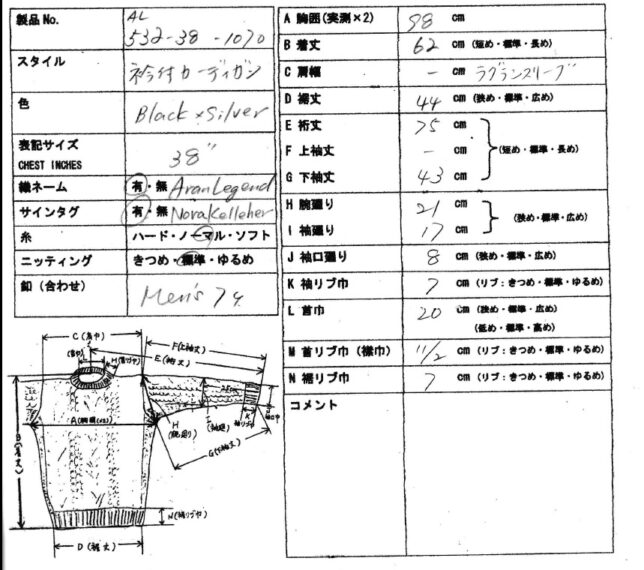 製品No.
AL
532-38-1070
スタイル
衿付カーディガン
色
Black × Silver
表記サイズ
CHEST INCHES
38"
織ネーム
有・無 Aran Legend
サインタグ
有・無 Nora Kelleher
糸
ハード・ノーマル・ソフト
ニッティング
きつめ・標準・ゆるめ
釦(合わせ)
Men's 7ヶ
A 胸囲(実測×2) 98 cm
B 着丈 62 cm (短め・標準・長め)
C 肩幅 - cm ラグランスリーブ
D 裾丈 44 cm (狭め・標準・広め)
E 裄丈 75 cm
F 上袖丈 - cm (短め・標準・長め)
G 下袖丈 43 cm
H 腕廻り 21 cm
(狭め・標準・広め)
I 袖廻り 17 cm
J 袖口廻り 8 cm (狭め・標準・広め)
K 袖リブ巾 7 cm (リブ:きつめ・標準・ゆるめ)
L 首巾 20 cm (狭め・標準・広め)
(低め・標準・高め)
M 首リブ巾(襟巾) 11/2 cm (リブ:きつめ・標準・ゆるめ)
N 裾リブ巾 7 cm (リブ:きつめ・標準・ゆるめ)
コメント
C(肩巾)
F(上袖丈)
E(裄丈)
L
(首巾)
M(首リブ巾)
A(胸囲(×2))
B(着丈)
H
(腕廻り)
I
(袖廻)
K
袖リブ巾
J
G(下袖丈)
N(裾リブ巾)
D(裾丈)